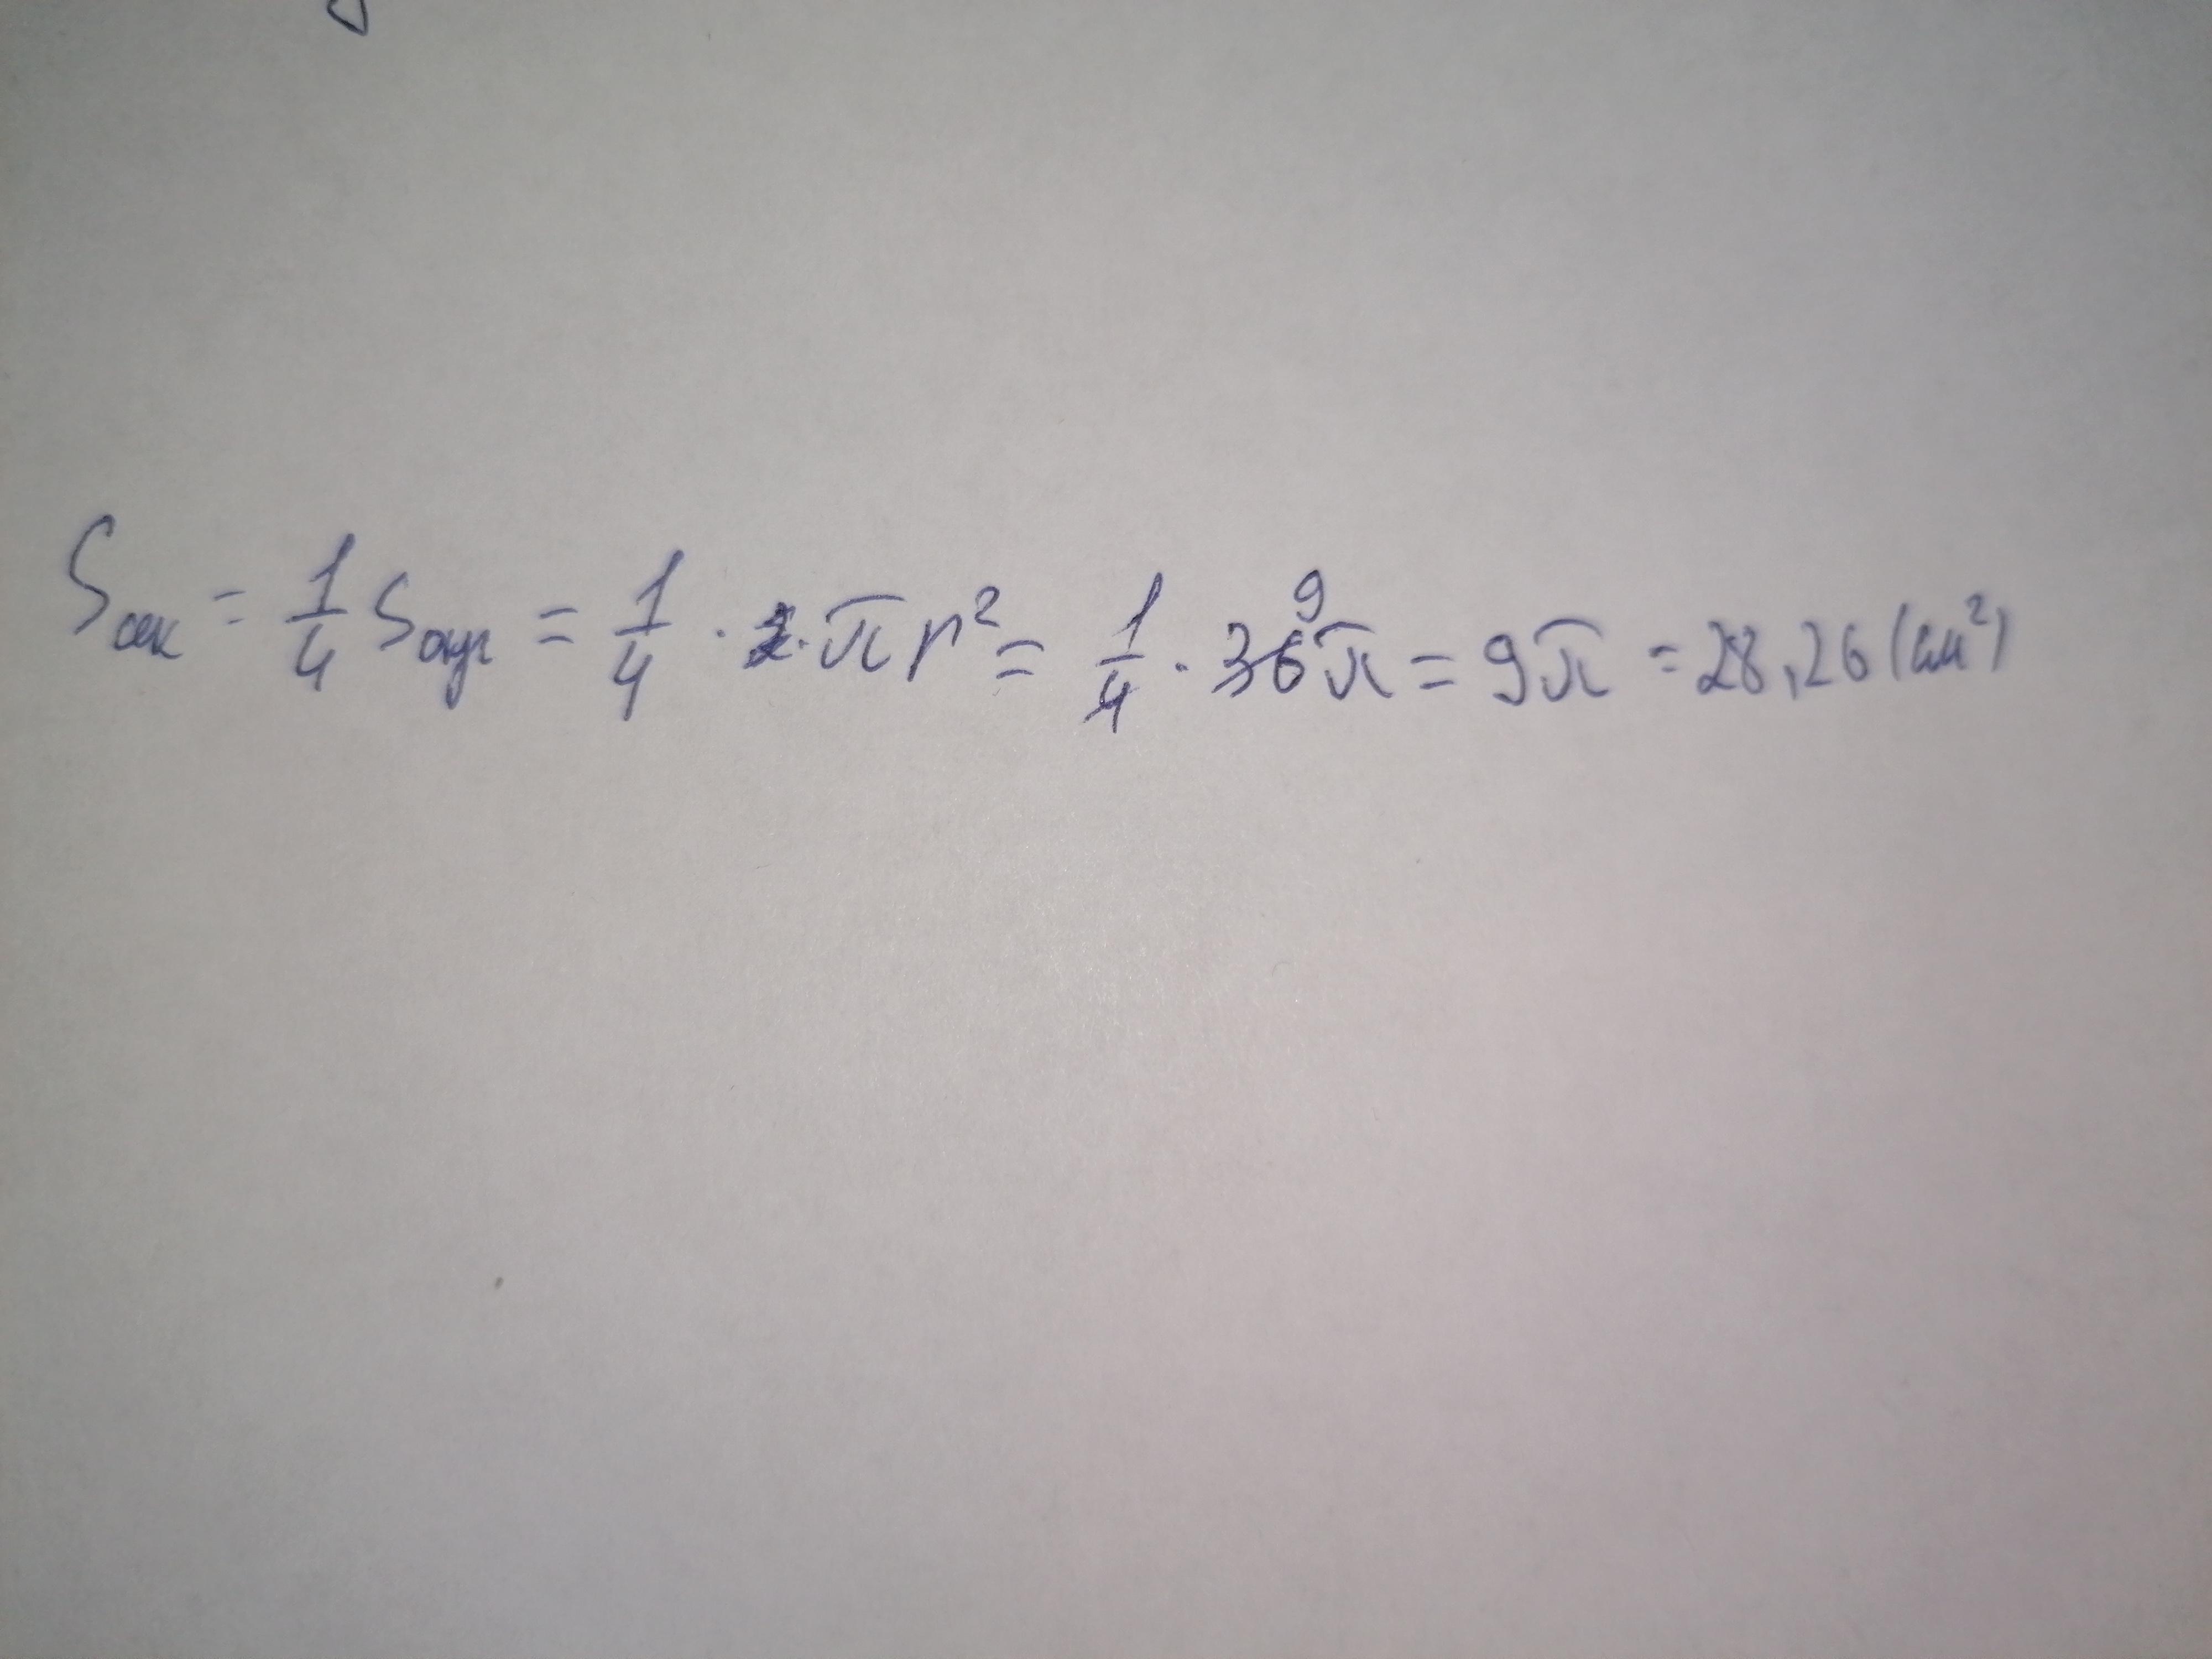 Sсек = 1/4 Sокр = 1/4 · πr² = 1/4 · 36π = 9π = 28,26 (см²)